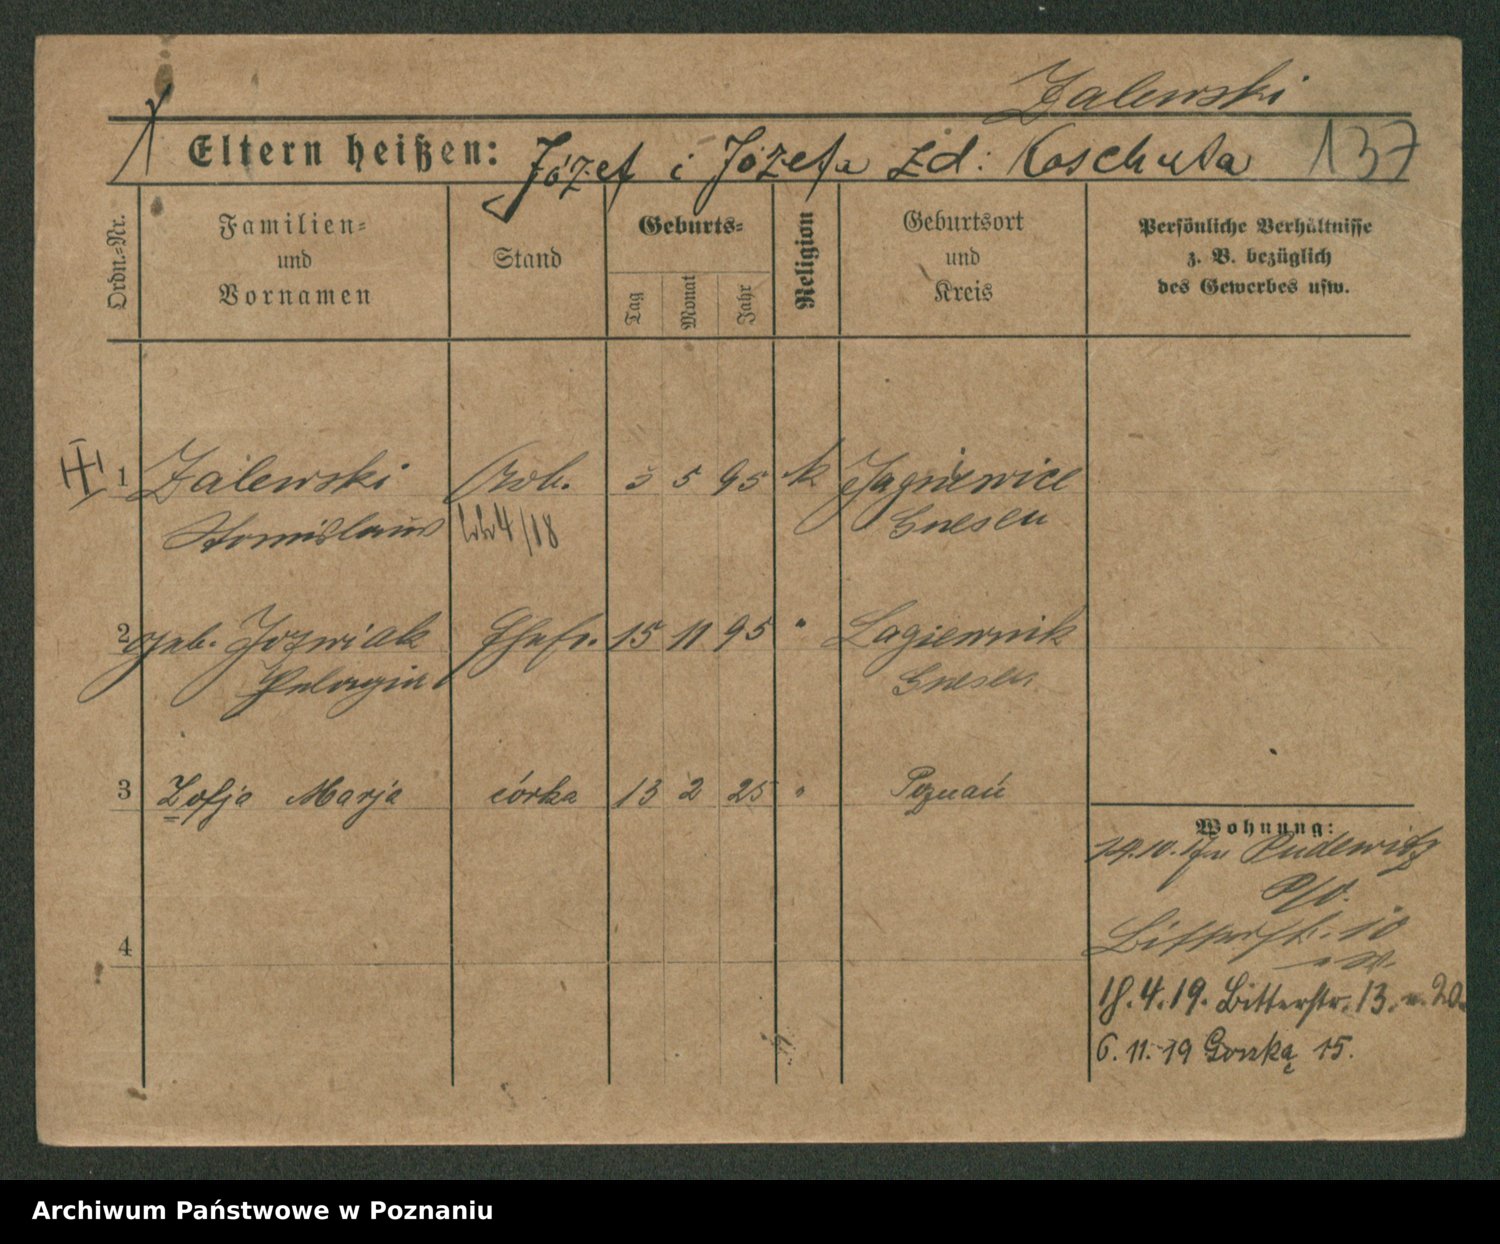 Zalewski
Eltern heißen: Józef i Józefa zd: Koschuta 137
Ordn.=Nr.
Familien=
und
Vornamen
Stand
Geburts=
Tag
Monat
Jahr
Religion
Geburtsort
und
Kreis
Persönliche Verhältnisse
z. B. bezüglich
des Gewerbes usw.
1 Zalewski Arb. 3 5 95 k Jagniewice
Stanislaus 4/18 Gnesen
2 geb. Jozwiak Ehefr. 15 11 95 " Lagiewnik
Pelagia Gnesen
3 Zofja Marja córka 13 2 25 " Poznań
Wohnung:
14.10. Pudewitz
Bitterstr. 10
4
18.4.19. Bitterstr. 13. 20.
6.11.19 Gorska 15.
Archiwum Państwowe w Poznaniu